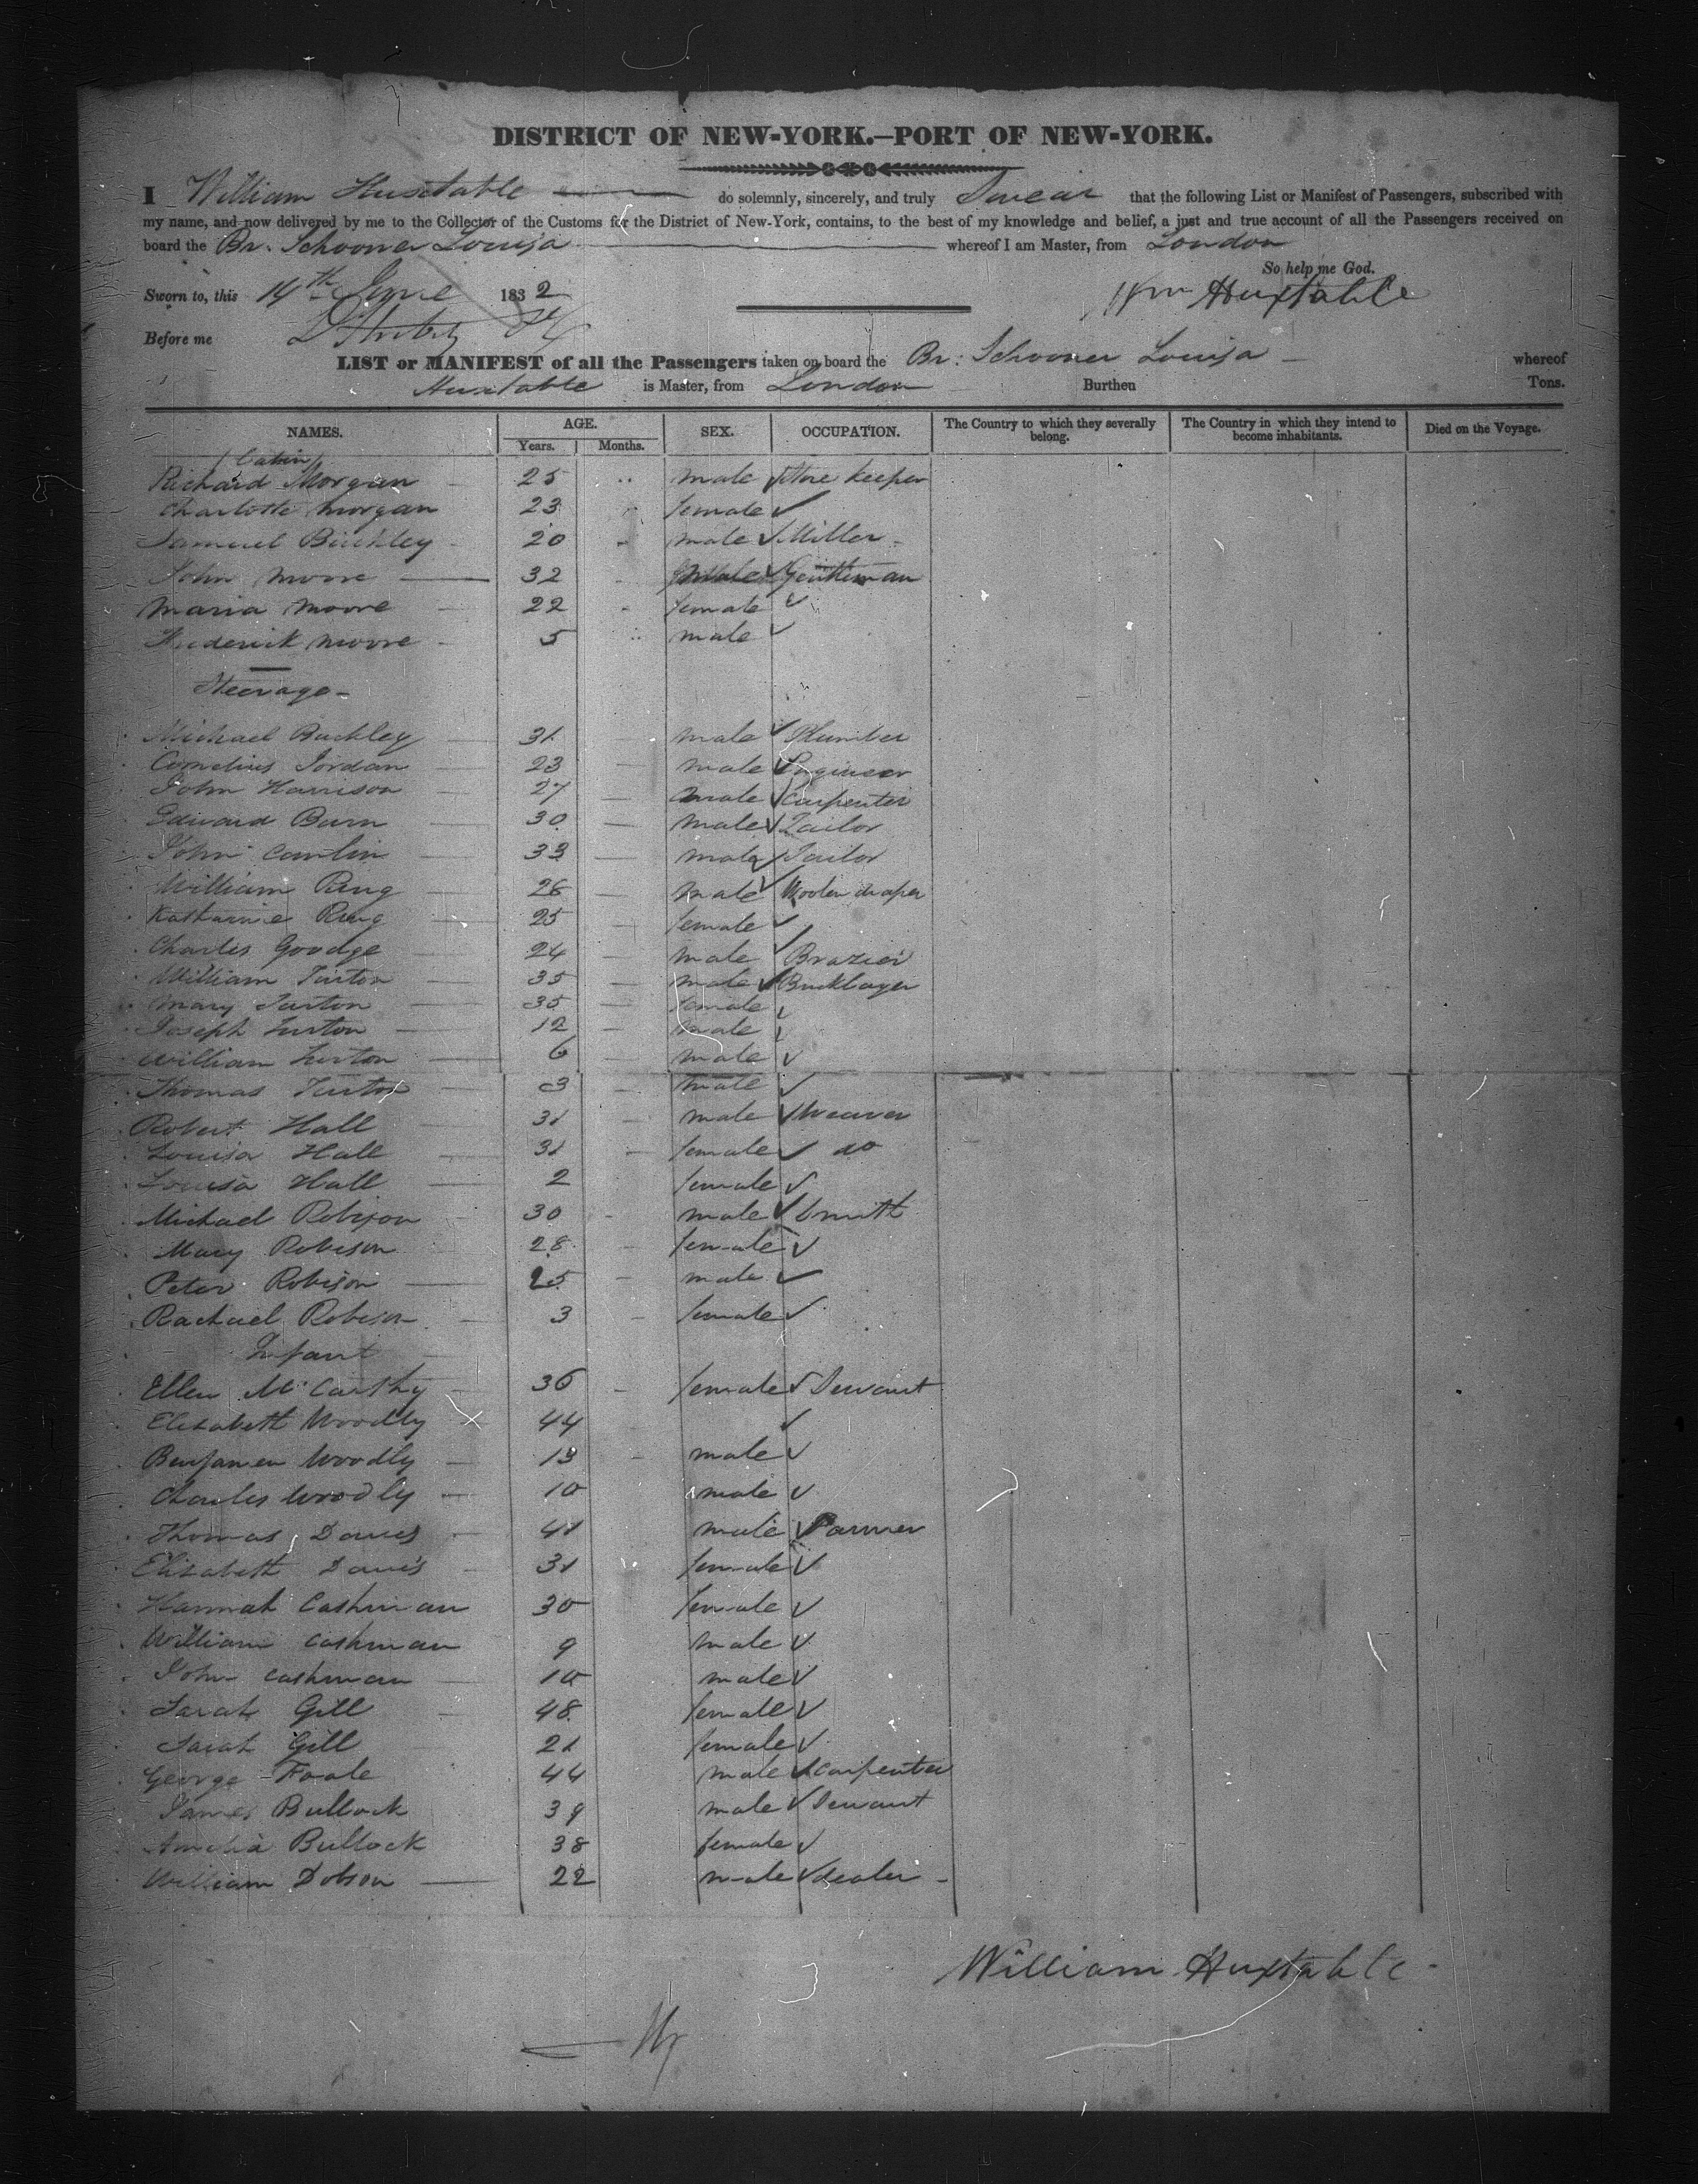 DISTRICT OF NEW-YORK.—PORT OF NEW-YORK.
I William Huxtable do solemnly, sincerely, and truly Swear that the following List or Manifest of Passengers, subscribed with
my name, and now delivered by me to the Collector of the Customs for the District of New-York, contains, to the best of my knowledge and belief, a just and true account of all the Passengers received on
board the Br. Schooner Louisa whereof I am Master, from London
So help me God.
Sworn to, this 14th June 1832 Wm Huxtable
Before me
LIST or MANIFEST of all the Passengers taken on board the Br: Schooner Louisa whereof
Huxtable is Master, from London Burthen Tons.
NAMES. AGE. Years. Months. SEX. OCCUPATION. The Country to which they severally belong. The Country in which they intend to become inhabitants. Died on the Voyage.
Cabin
Richard Morgan 25 male Store keeper
Charlotte Morgan 23 female
Samuel 20 male Miller
John Moore 32 male Gentleman
Maria Moore 22 female
Frederick Moore 5 male
Steerage
Michael Buckley 31 male Plumber
Cornelius Jordan 23 male Engineer
John Harrison 27 male Carpenter
Edward Burn 30 male Tailor
John 33 male Tailor
William Ring 26 male Woolen draper
Katharine Ring 25 female
Charles Goodge 24 male Brazier
William Turton 35 male Bricklayer
Mary Turton 35 female
Joseph Turton 12 male
William Turton 6 male
Thomas Turton 3 male
Robert Hall 31 male Weaver
Louisa Hall 31 female do
Louisa Hall 2 female
Michael Robison 30 male Smith
Mary Robison 28 female
Peter Robison 25 male
Rachael Robison 3 female
Infant
Ellen McCarthy 36 female Servant
Elizabeth Woodly 44
Benjamen Woodly 13 male
Charles Woodly 10 male
Thomas Davis 41 male Farmer
Elizabeth Davis 31 female
Hannah Cashman 30 female
William Cashman 9 male
John Cashman 10 male
Sarah Gill 48 female
Sarah Gill 21 female
George Foale 44 male Carpenter
James Bullock 39 male Servant
Amelia Bullock 38 female
William Dobson 22 male dealer
William Huxtable